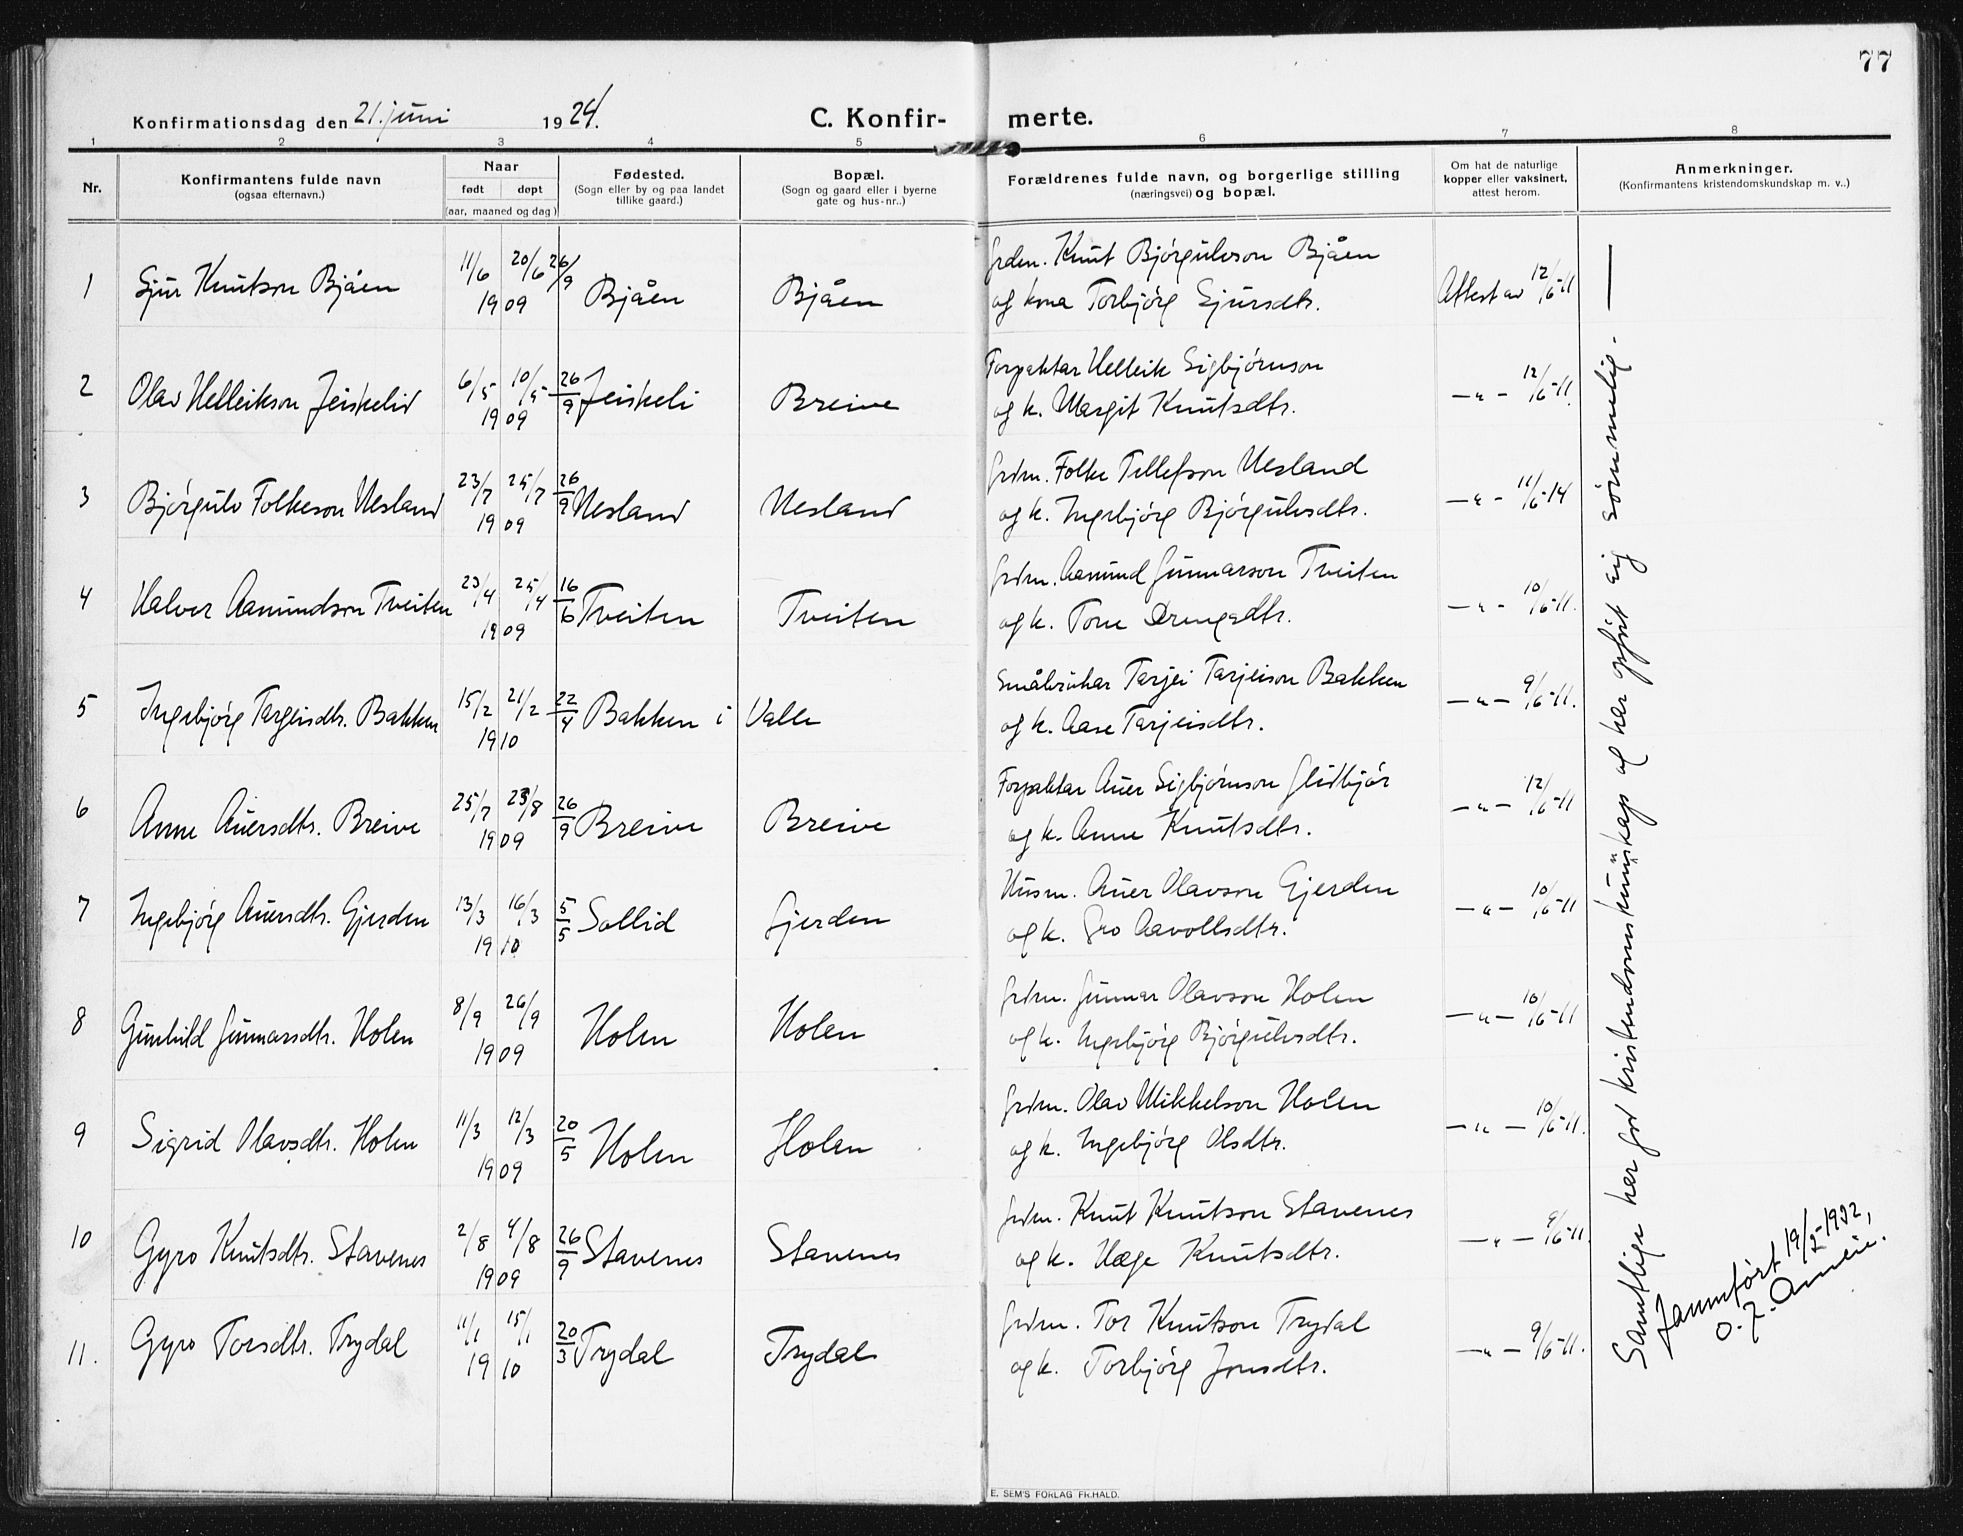 77
Konfirmationsdag den 21. juni 1924.
C. Konfirmerte.
1 2 3 4 5 6 7 8
Nr.
Konfirmantens fulde navn
(ogsaa efternavn.)
Naar
født døpt
(aar, maaned og dag)
Fødested.
(Sogn eller by og paa landet
tillike gaard.)
Bopæl.
(Sogn og gaard eller i byerne
gate og hus-nr..)
Forældrenes fulde navn, og borgerlige stilling
(næringsvei) og bopæl.
Om hat de naturlige
kopper eller vaksinert,
attest herom.
Anmerkninger.
(Konfirmantens kristendomskundskap m. v..)
1 Sjur Knutson Bjåen 11/6 20/6 26/9 1909 Bjåen Bjåen
Grdm. Knut Bjørgulvson Bjåen
og kona Torbjørg Sjursdtr. Attest av 12/6-11
2 Olav Helleikson Jeiskelid 6/5 10/5 26/9 1909 Jeiskeli Breive
Forpaktar Helleik Sigbjørnson
og k. Margit Knutsdtr. —"— 12/6-11.
3 Bjørgulv Folkeson Nesland 23/7 25/7 26/9 1909 Nesland Nesland
Grdm. Folke Tellefson Nesland
og k. Ingebjørg Bjørgulvsdtr. —"— 11/6-14
4 Halvor Aamundson Tveiten 23/4 25/4 16/6 1909 Tveiten Tveiten
Grdm. Aamund Gunnarson Tveiten
og k. Tone Drengsdtr. —"— 10/6-11.
5 Ingebjørg Targeisdtr. Bakken 15/2 21/2 22/4 1910 Bakken i Valle
Småbrukar Tarjei Tarjeison Bakken
og k. Aase Tarjeisdtr. —"— 9/6-11.
6 Anne Auersdtr. Breive 25/7 23/8 26/9 1909 Breive Breive
Forpaktar Auer Sigbjørnson Glidbjør
og k. Anne Knutsdtr. —"— 12/6-11
7 Ingebjørg Auersdtr. Gjerden 13/3 16/3 5/5 1910 Sollid Gjerden
Husm. Auer Olavson Gjerden
og k. Gro Aavollsdtr. —"— 10/6-11
8 Gunhild Gunnarsdtr. Holen 8/9 26/9 1909 Holen Holen
Grdm. Gunnar Olavson Holen
og k. Ingebjørg Bjørgulvsdtr. —"— 10/6-11
9 Sigrid Olavsdtr. Holen 11/3 12/3 20/5 1909 Holen Holen
Grdm. Olav Mikkelson Holen
og k. Ingebjørg Olsdtr. —"— 10/6-11.
10 Gyro Knutsdtr. Stavenes 2/8 4/8 26/9 1909 Stavenes Stavenes
Grdm. Knut Knutson Stavenes
og k. Hæge Knutsdtr. —"— 9/6-11.
11. Gyro Torsdtr. Trydal 11/1 15/1 20/3 1910 Trydal Trydal
Grdm. Tor Knutson Trydal
og k. Torbjørg Jonsdtr. —"— 9/6-11.
Samtlige har god kristendomskunnskap og har opført sig sømmelig.—
Jamnført 19/2-1932,
O. J. Aml
E. SEM'S FORLAG FR.HALD.